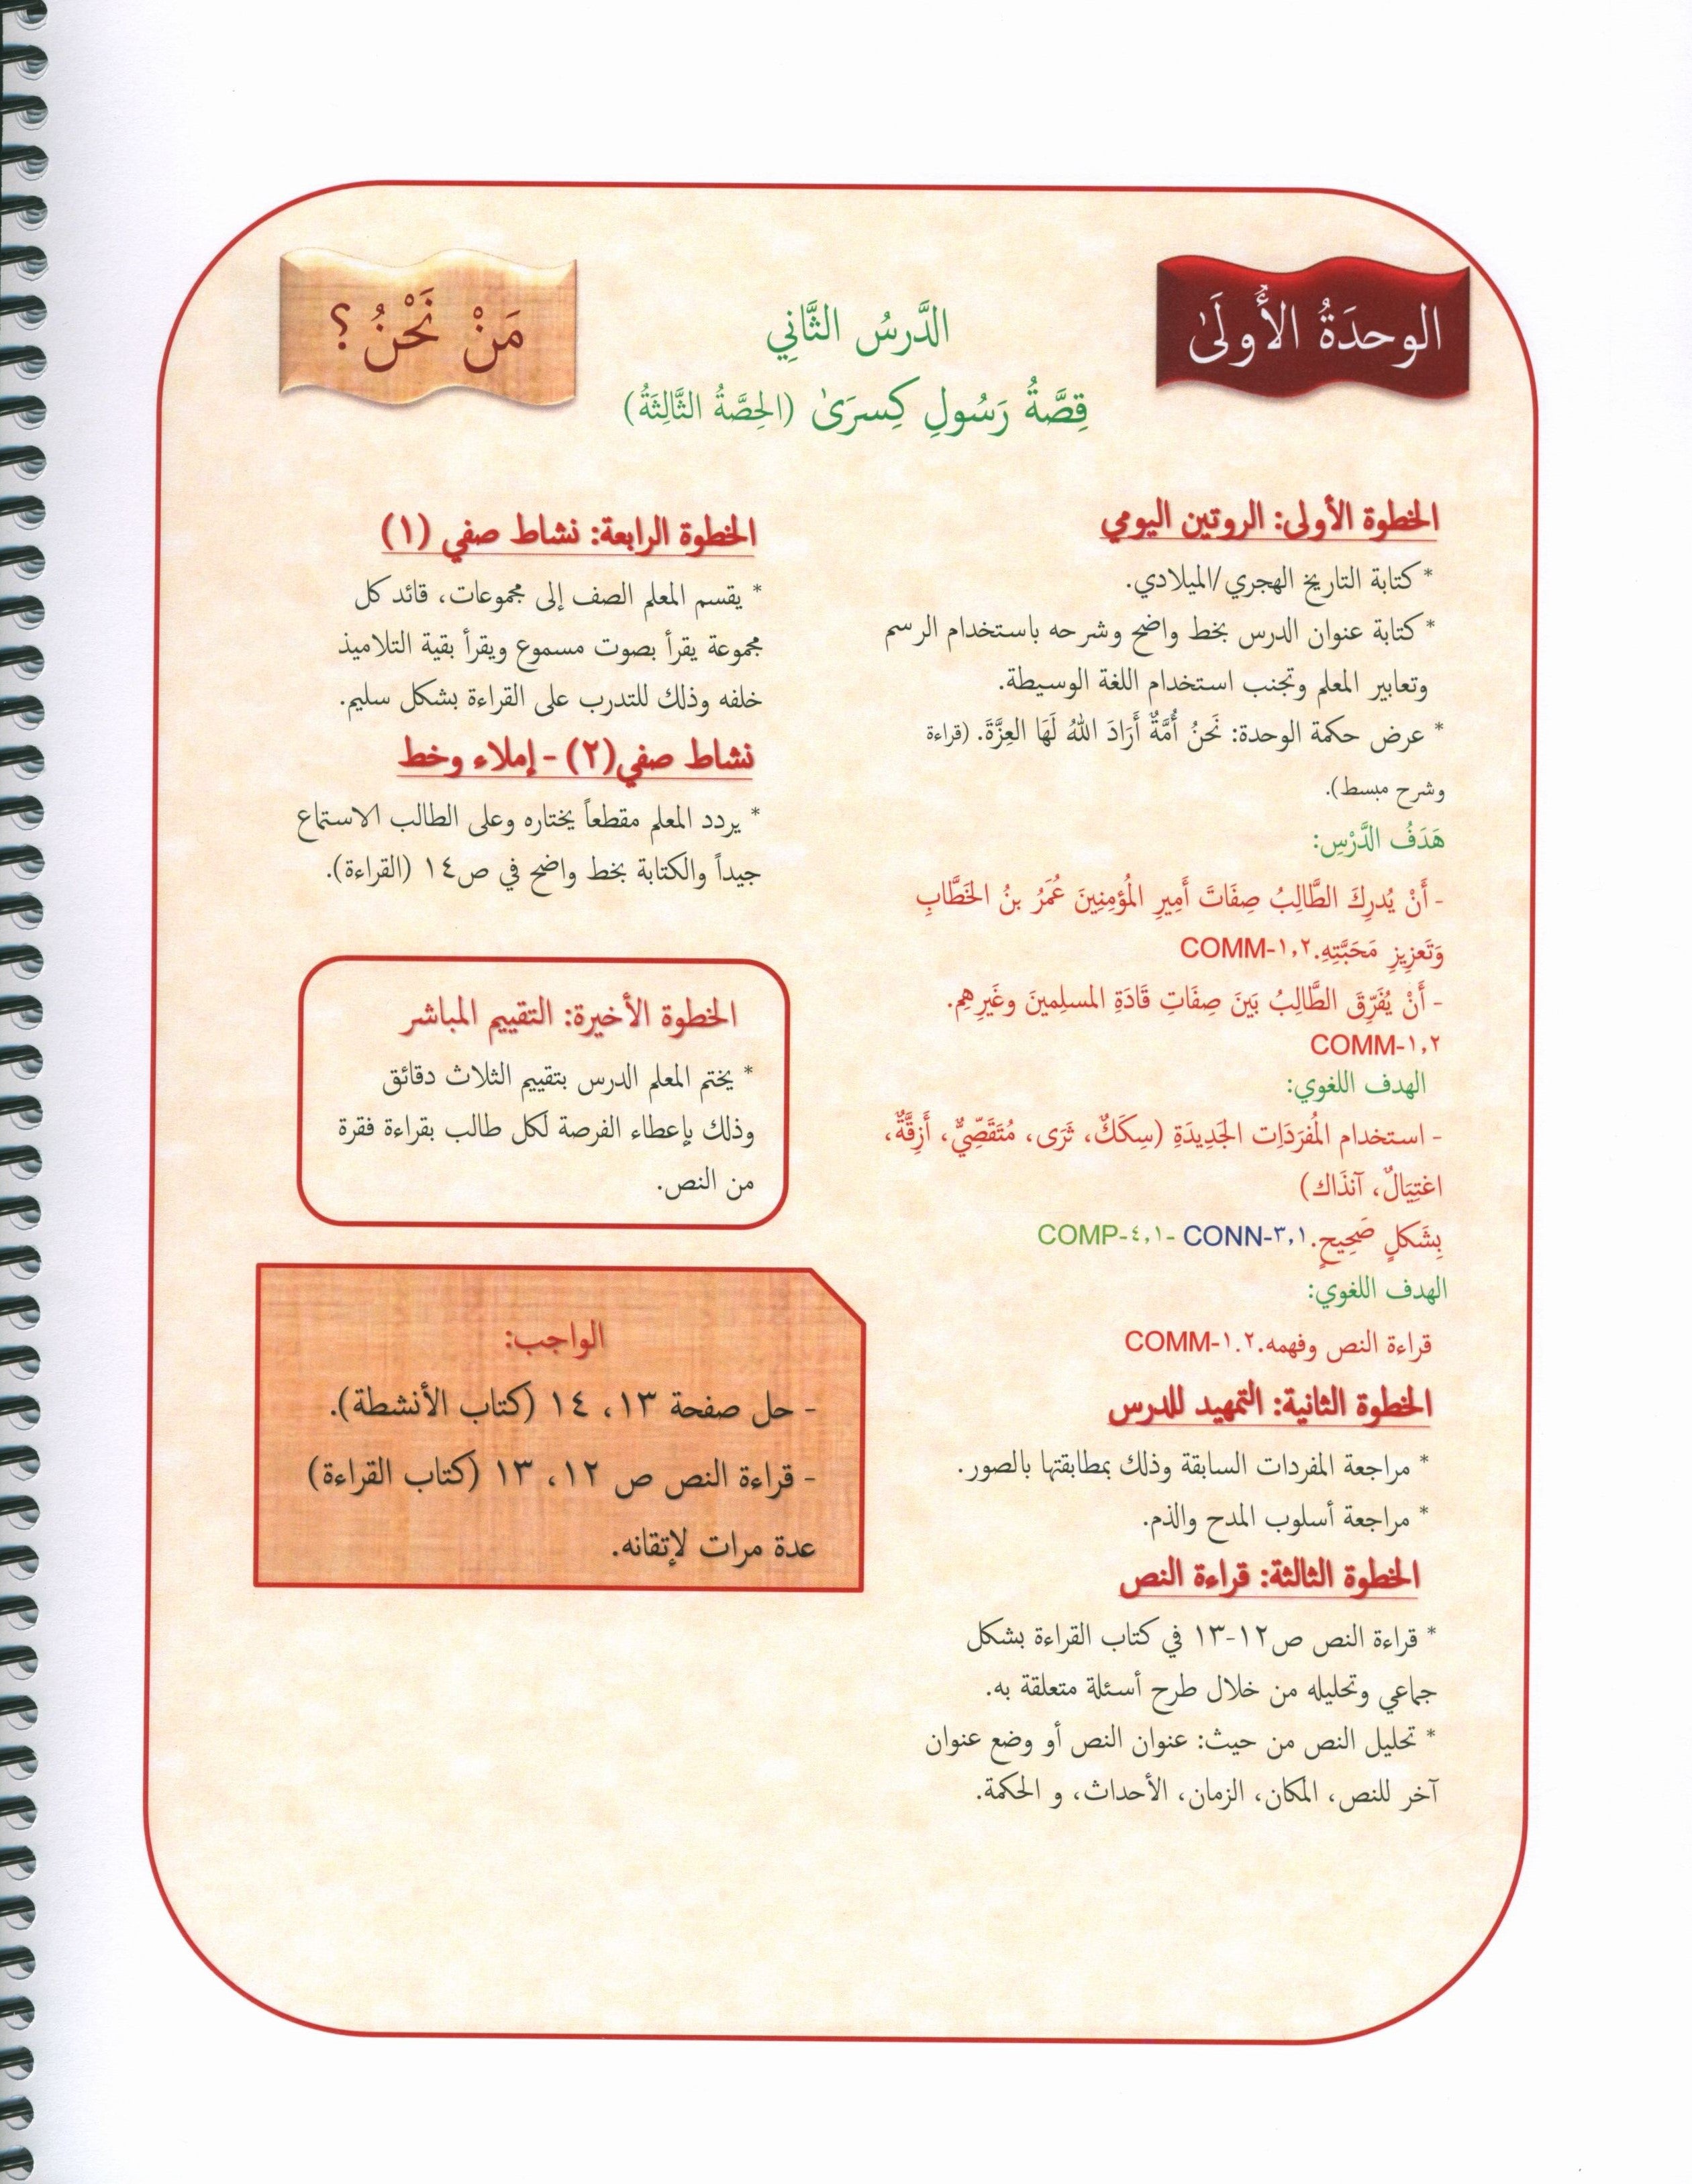 الوحدَةُ الأُولَىٰ
الدَّرسُ الثَّانِي
قِصَّةُ رَسُولِ كِسرَىٰ (الحِصَّةُ الثَّالِثَةُ)
مَنْ نَحْنُ؟
الخطوة الأولى: الروتين اليومي
* كتابة التاريخ الهجري/الميلادي.
* كتابة عنوان الدرس بخط واضح وشرحه باستخدام الرسم
وتعابير المعلم وتجنب استخدام اللغة الوسيطة.
* عرض حكمة الوحدة: نَحنُ أُمَّةٌ أَرَادَ اللهُ لَهَا العِزَّةَ. (قراءة
وشرح مبسط).
هَدَفُ الدَّرْسِ:
- أَنْ يُدرِكَ الطَّالِبُ صِفَاتَ أَمِيرِ المُؤمِنِينَ عُمَرُ بنُ الخَطَّابِ
وَتَعزِيزِ مَحَبَّتِهِ.COMM-١,٢
- أَنْ يُفَرِّقَ الطَّالِبُ بَينَ صِفَاتِ قَادَةِ المسلِمينَ وغَيرِهِم.
COMM-١,٢
الهدف اللغوي:
- استخدام المُفرَدَاِت الجَدِيدَةِ (سِكَكٌ، ثَرَى، مُتَقَصِّيٌّ، أَزِقَّةٌ،
اغتِيَالٌ، آنذَاك)
بِشَكلٍ صَحِيحٍ.CONN-٣,١ -COMP-٤,١
الهدف اللغوي:
قراءة النص وفهمه.COMM-١.٢
الخطوة الثانية: التمهيد للدرس
* مراجعة المفردات السابقة وذلك بمطابقتها بالصور.
* مراجعة أسلوب المدح والذم.
الخطوة الثالثة: قراءة النص
* قراءة النص ص١٢-١٣ في كتاب القراءة بشكل
جماعي وتحليله من خلال طرح أسئلة متعلقة به.
* تحليل النص من حيث: عنوان النص أو وضع عنوان
آخر للنص، المكان، الزمان، الأحداث، و الحكمة.
الخطوة الرابعة: نشاط صفي (١)
* يقسم المعلم الصف إلى مجموعات، قائد كل
مجموعة يقرأ بصوت مسموع ويقرأ بقية التلاميذ
خلفه وذلك للتدرب على القراءة بشكل سليم.
نشاط صفي(٢) - إملاء وخط
* يردد المعلم مقطعاً يختاره وعلى الطالب الاستماع
جيداً والكتابة بخط واضح في ص١٤ (القراءة).
الخطوة الأخيرة: التقييم المباشر
* يختم المعلم الدرس بتقييم الثلاث دقائق
وذلك بإعطاء الفرصة لكل طالب بقراءة فقرة
من النص.
الواجب:
- حل صفحة ١٣، ١٤ (كتاب الأنشطة).
- قراءة النص ص ١٢، ١٣ (كتاب القراءة)
عدة مرات لإتقانه.